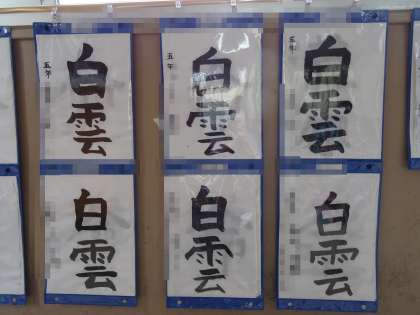 白雲
五年
白雲
五年
白雲
五年
白雲
白雲
白雲